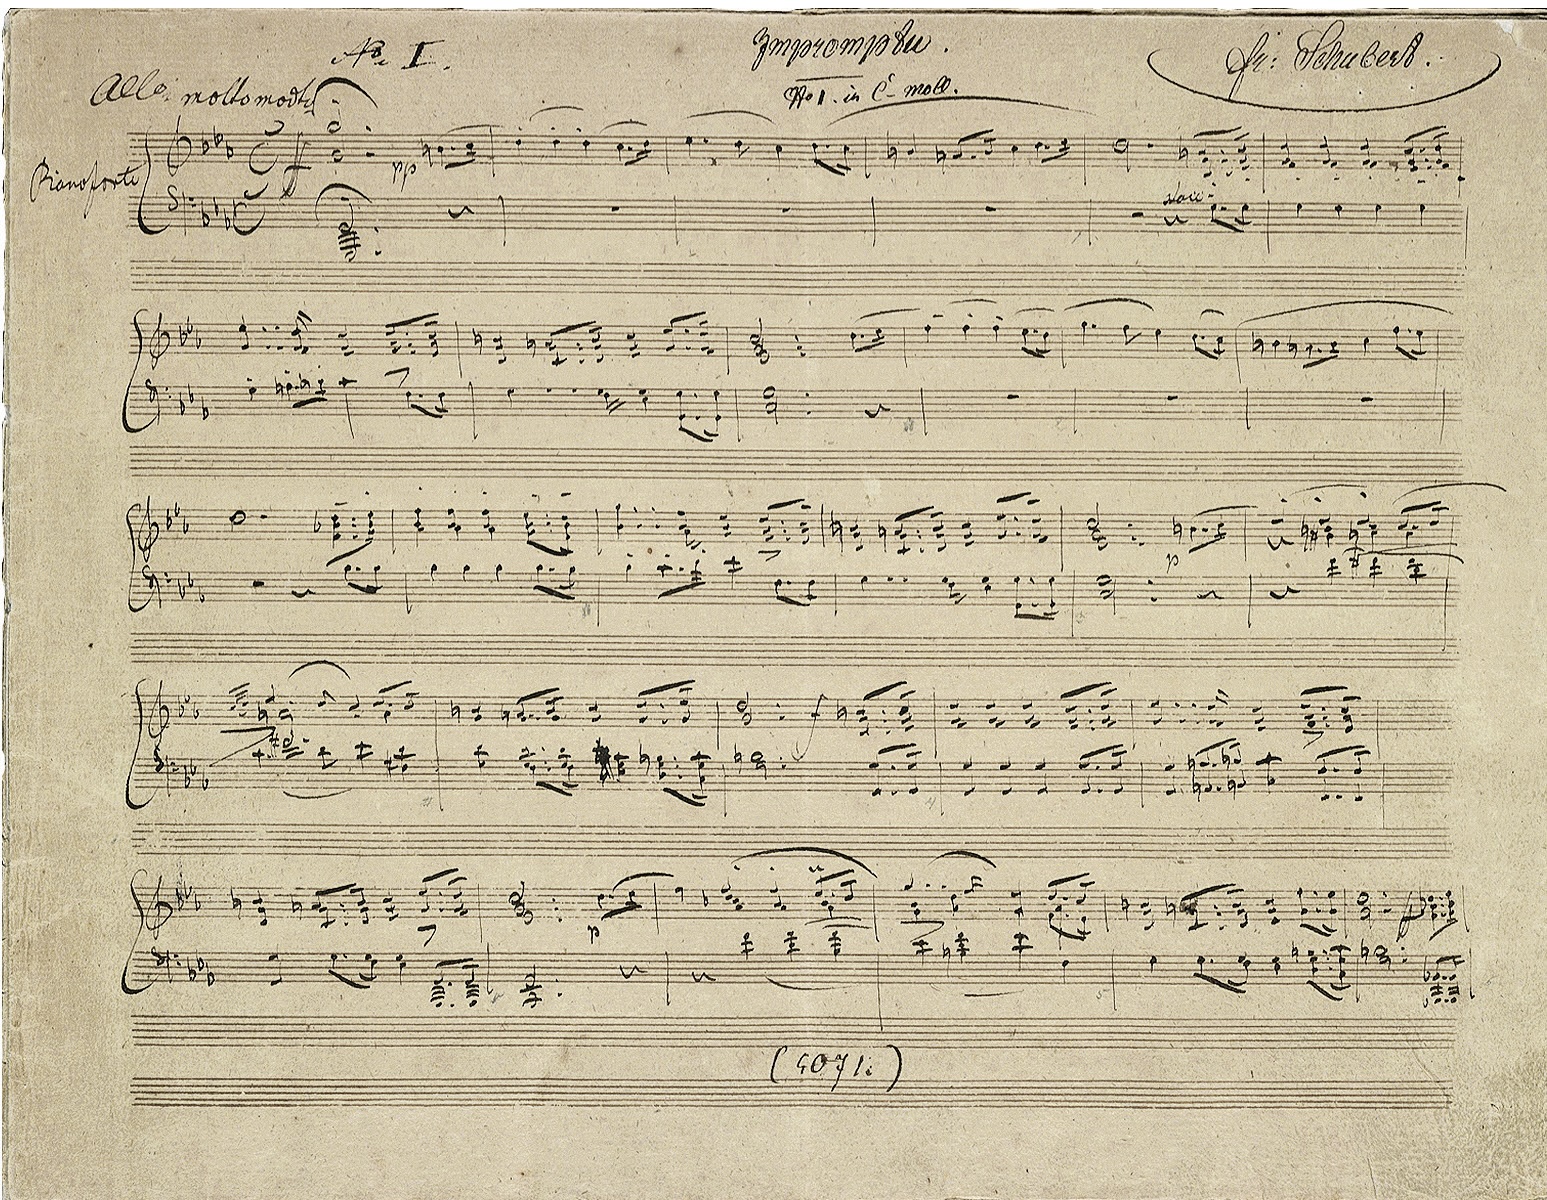 No. I.
Impromptu.
Fr: Schubert.
Allo. molto modto
No 1. in C- moll.
Pianoforte
pp
p
f
p
(4071.)